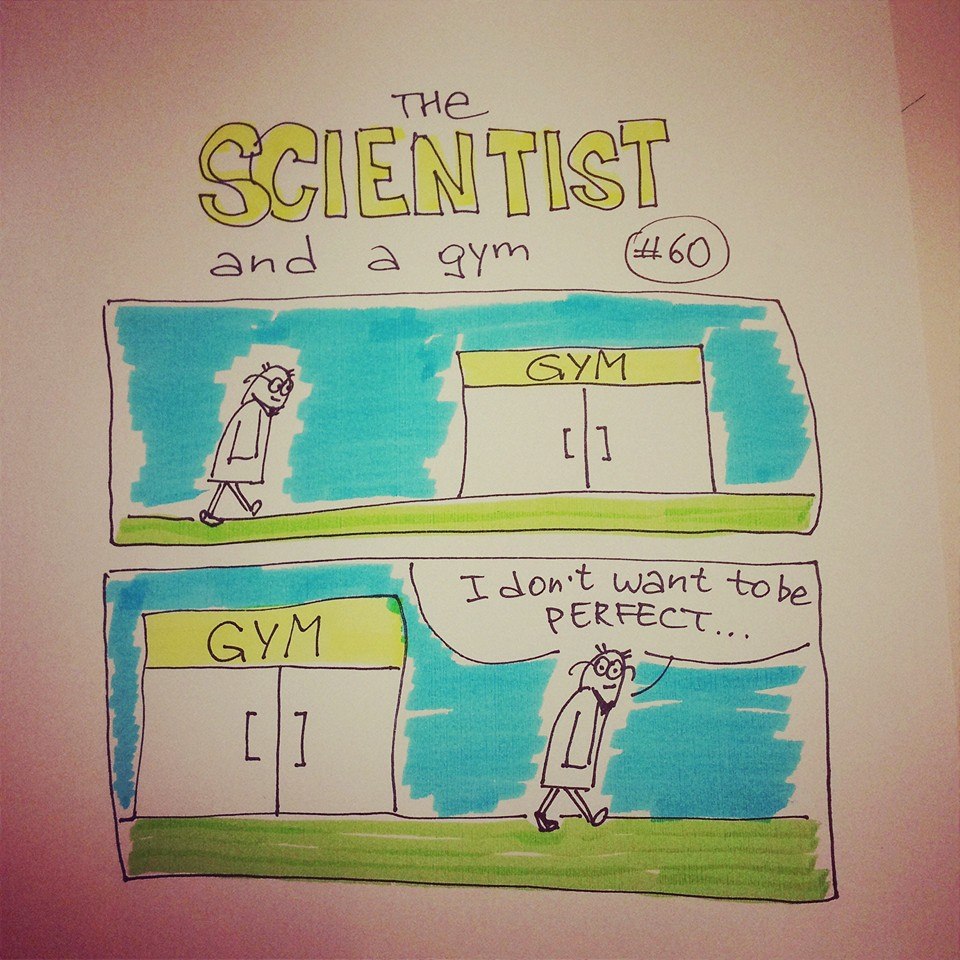 THe
SCIENTIST
and a gym
#60
GYM
I don't want to be
PERFECT...
GYM